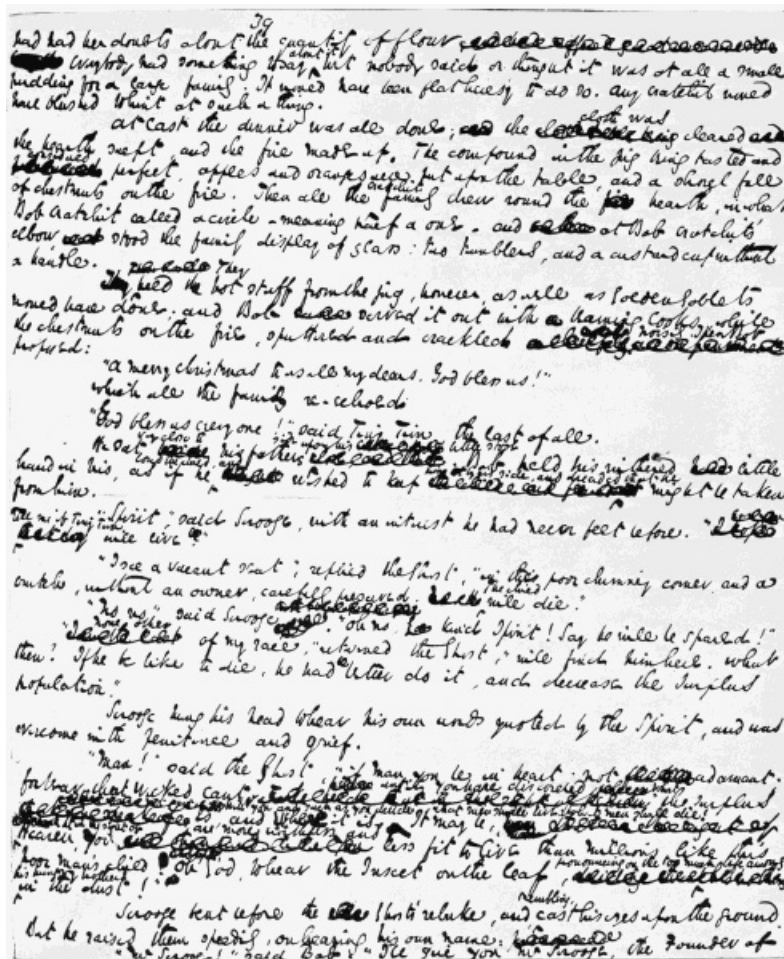 39
had had her doubts about the quantity of flour
Everybody had something to say about it, but nobody said or thought it was at all a small
pudding for a large family. It would have been flat heresy to do so. Any Cratchit would
have blushed to hint at such a thing.
At last the dinner was all done; the cloth was cleared
the hearth swept and the fire made up. The compound in the jug being tasted and
considered perfect, apples and oranges were put upon the table, and a shovel full
of chestnuts on the fire. Then all the Cratchit family drew round the hearth, in what
Bob Cratchit called a circle - meaning half a one. and at Bob Cratchit's
elbow stood the family display of glass: two tumblers, and a custard cup without
a handle.
They held the hot stuff from the jug, however, as well as Golden Goblets
would have done; and Bob served it out with beaming looks, while
the chestnuts on the fire, sputtered and crackled noisily. Then Bob
proposed:
"A merry christmas to us all my dears. God bless us!"
which all the family re-echoed.
"God bless us every one!" said Tiny Tim the last of all.
He sat very close to his father's side, upon his little stool. Bob held his withered little
hand in his, as if he loved the child, and wished to keep him by his side, and dreaded that he might be taken
from him.
"Spirit," said Scrooge, with an interest he had never felt before. "
tell me if Tiny Tim will live."
"I see a vacant seat", replied the Ghost, "in the poor chimney corner, and a
crutch, without an owner, carefully preserved. the child will die."
"No, no," said Scrooge. "Oh no, kind Spirit! Say he will be spared!"
none other of my race, "returned the Ghost, "will find him here. What
then? If he be like to die, he had better do it, and decrease the surplus
population."
Scrooge hung his head to hear his own words quoted by the Spirit, and was
overcome with penitence and grief.
"Man!" said the Ghost "if man you be in heart, not adamant.
forbear that wicked cant until you have discovered what the surplus
is and where it is. Will you decide what men shall live, what men shall die?
It may be, that in the sight of
Heaven, you are more worthless and less fit to live than millions like this
poor man's child. Oh God, to hear the Insect on the leaf, pronouncing on the too much life among
his hungry brothers
in the dust!"
Scrooge bent before the Ghost's rebuke, and trembling cast his eyes upon the ground.
But he raised them speedily, on hearing his own name.
"Mr Scrooge!" said Bob; "I'll give you Mr Scrooge, the Founder of